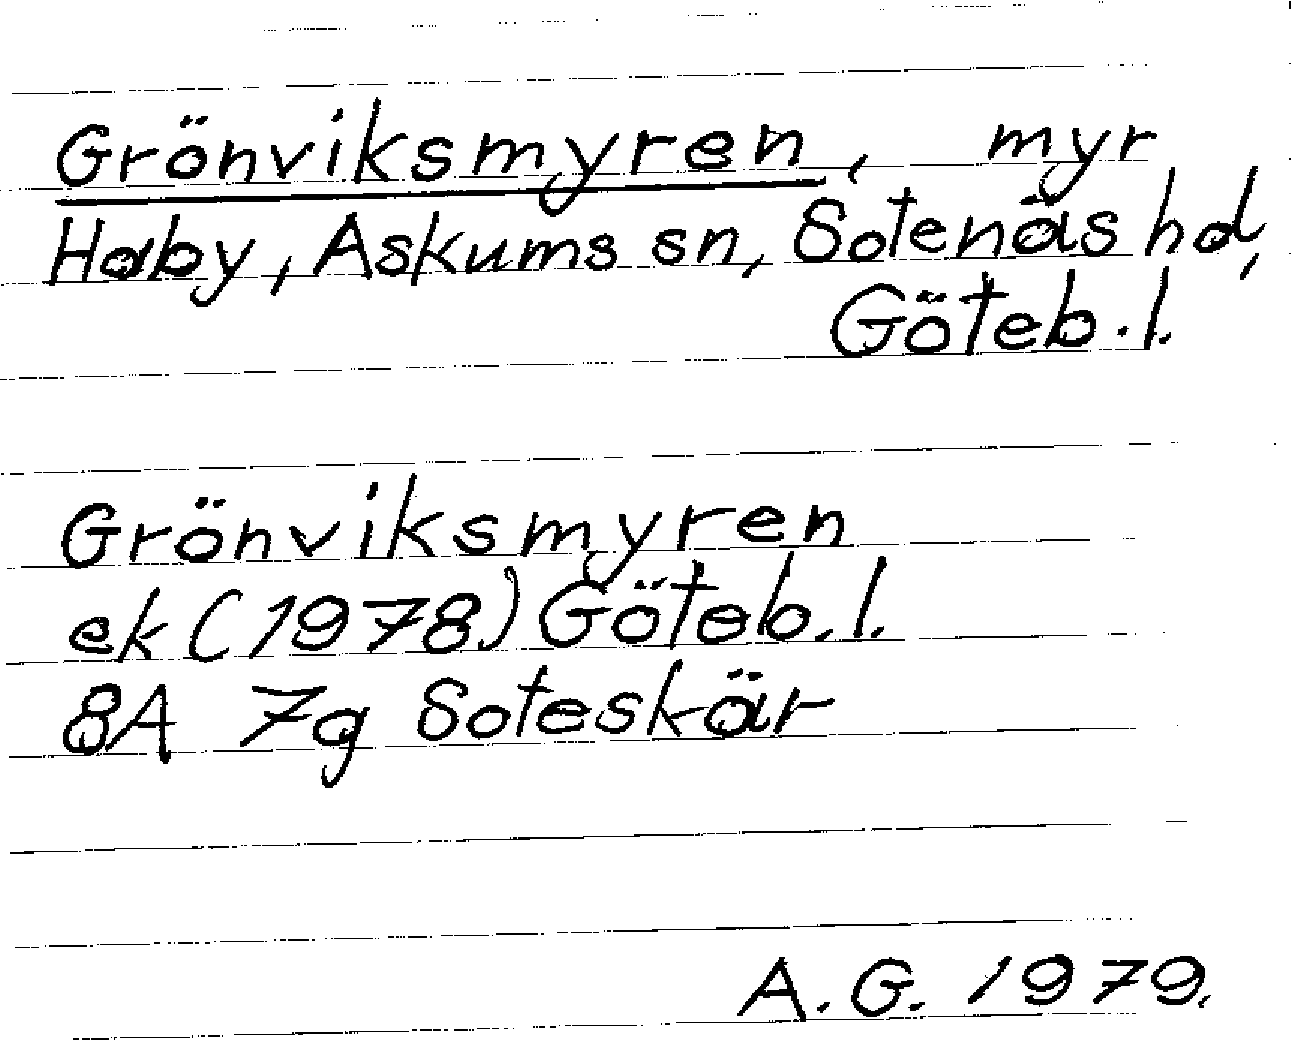 Grönviksmyren, myr
Haby, Askums sn, Sotenäs hd,
Göteb.l.
Grönviksmyren
ek (1978) Göteb.l.
8A 7g Soteskär
A.G. 1979.